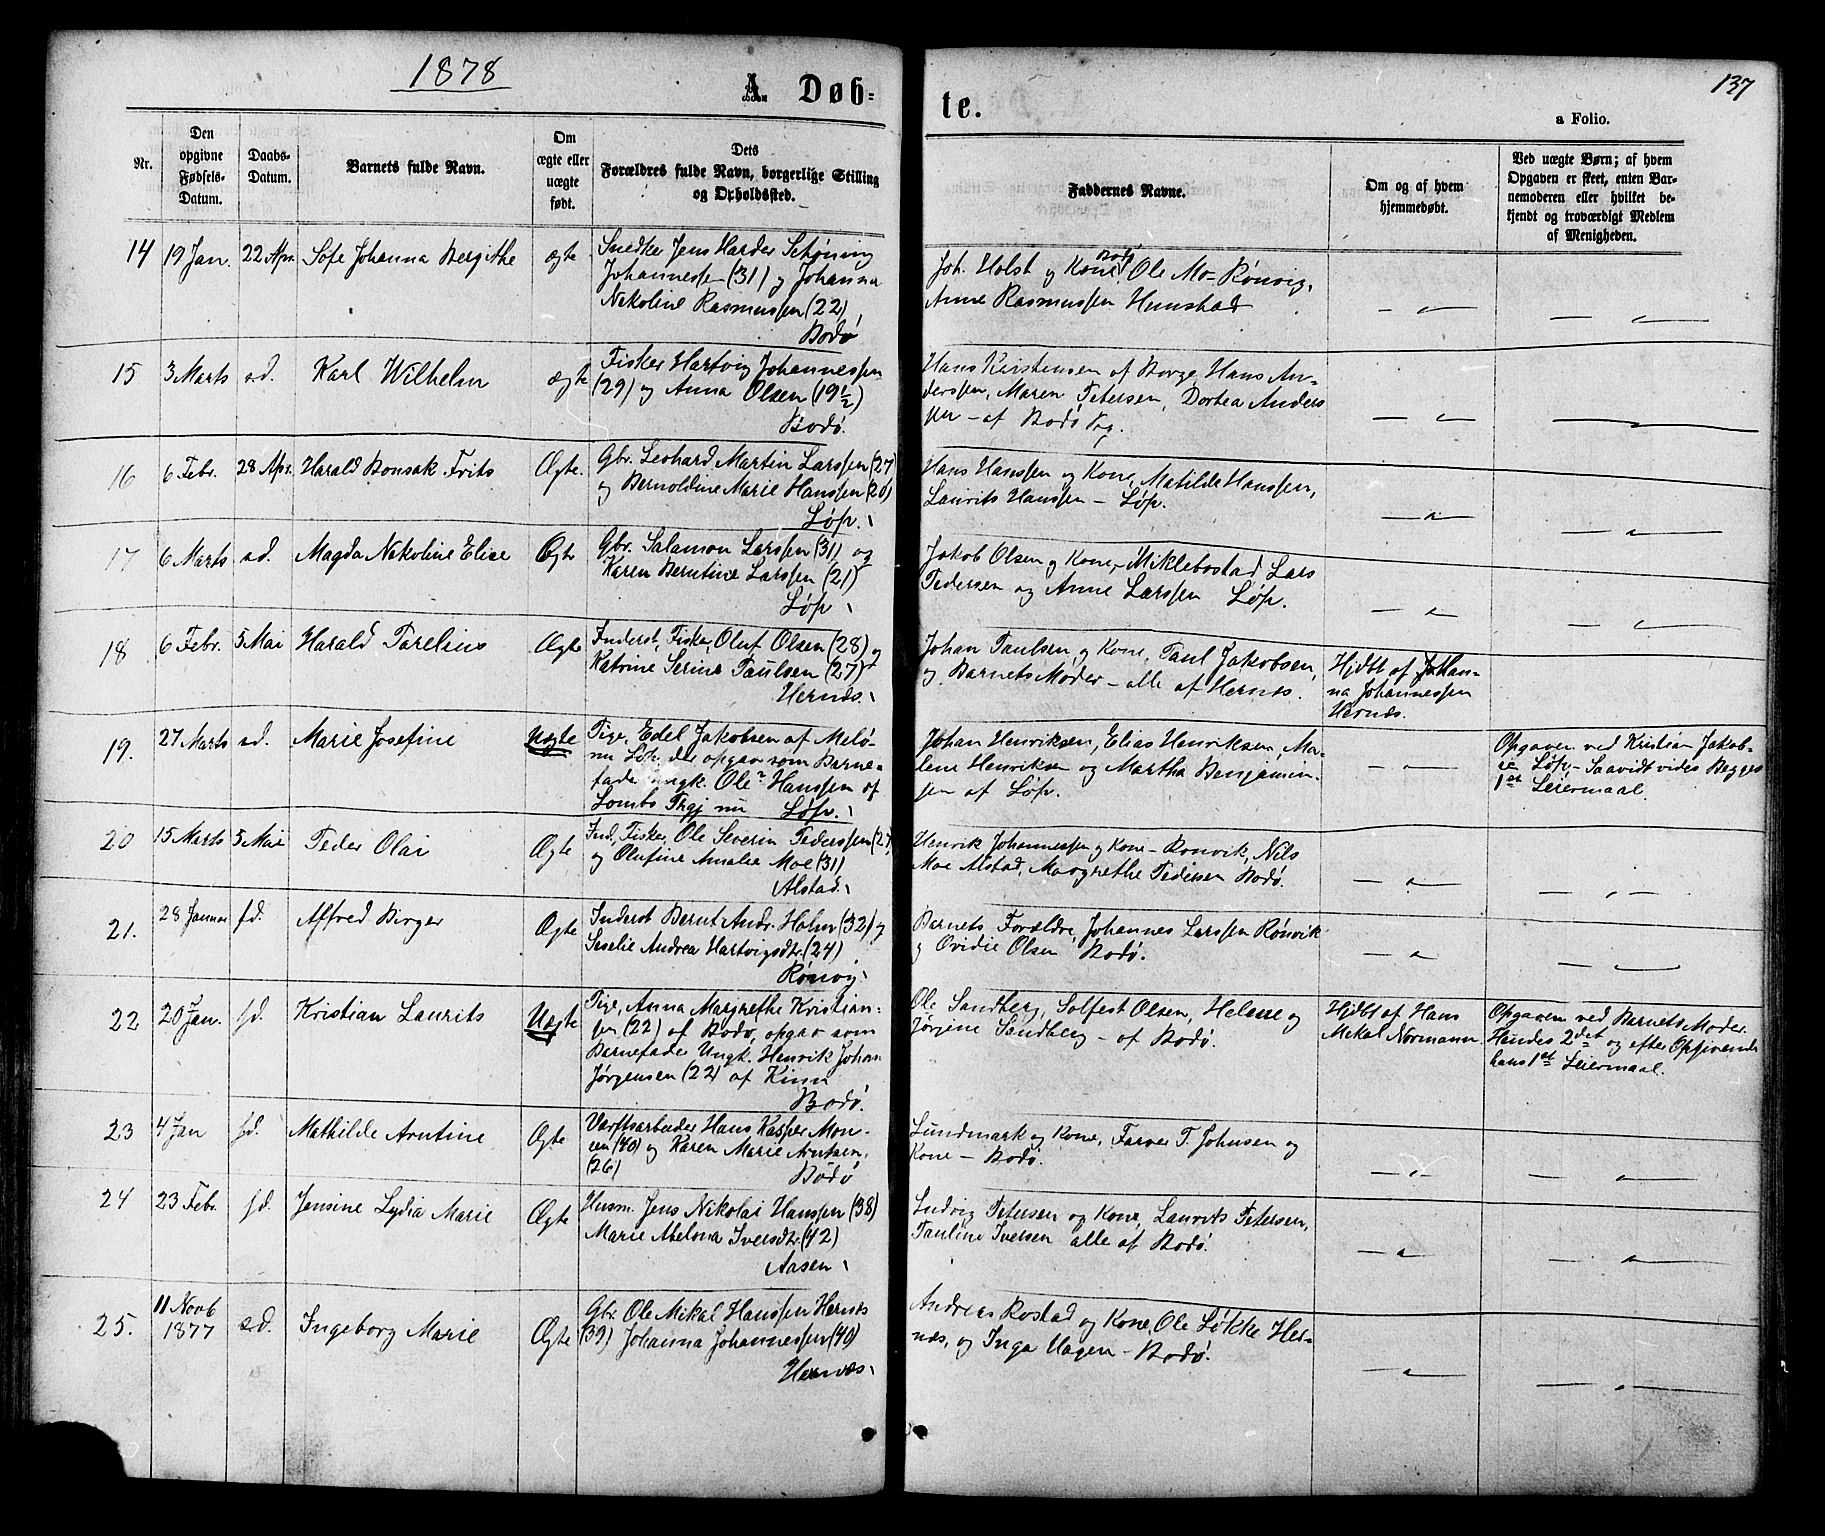 1878
A Døb-
te.
137
a Folio.
Nr.
Den
opgivne
Fødsels-
Datum.
Daabs-
Datum.
Barnets fulde Navn.
Om
ægte eller
uægte
født.
Dets
Forældres fulde Navn, borgerlige Stilling
og Opholdssted.
Faddernes Navne.
Om og af hvem
hjemmedøbt.
Ved uægte Børn; af hvem
Opgaven er skeet, enten Bar-
nemoderen eller hvilket be-
kjendt og troværdigt Medlem
af Menigheden.
14 19 Jan. 22 Apr. Sofe Johanna Bergithe ægte
Snedker Jens Harder Schøning
Johannessen (31) og Johanna
Nekoline Rasmussen (22)
Bodø
Joh. Holst og Kone, Ole Mo - Rønvig,
Anne Rasmussen Hunstad
15 3 Marts s.d. Karl Wilhelm ægte
Fisker Hartvig Johannessen
(29) og Anna Olsen (19½)
Bodø.
Hans Kirstensen af Borge, Hans An-
derssen, Maren Petersen, Dortea Anders
sen - af Bodø Pg.
16 6 Febr. 28 Apr. Harald Bonsak Frits Ægte.
Gbr. Leohard Martin Larssen (27)
og Bernoldine Marie Hanssen (20)
Løp.
Hans Hanssen og Kone, Matilde Hanssen,
Laurits Hanssen - Løp.
17 6 Marts s.d. Magda Nekoline Elise Ægte
Gbr. Salamon Larssen (31) og
Karen Berntine Larssen (21)
Løp
Jakob Olsen og Kone, - Miklebostad, Lars
Pedersen og Anne Larssen Løp.
18 6 Febr. 5 Mai Harald Parelius Ægte
Inderst, Fisker, Oluf Olsen (28) og
Katrine Serine Paulsen (27)
Hernæs.
Johan Paulsen og Kone, Paul Jakobsen,
og Barnets Moder - alle af Hernæs.
Hjdbt af Johan-
na Johannessen
Hernæs.
19. 27 Marts s.d. Marie Josefine Uægte
Pige, Edel Jakobsen af Melø-
nu Løp, der opgav som Barne-
fader Ungk. Ole Hanssen af
Lombs Prgj nu Løp.
Johan Henriksen, Elias Henriksen, Ma-
lene Henriksen og Martha Benjamin-
sen af Løp.
Opgaven ved Kristian Jakob-
Løp - Saavidt vides Begges
1st Leiermaal.
20 15 Marts 5 Mai Peder Olai Ægte
Ind., Fisker, Ole Severin Pederssen (27)
og Olufine Amalie Moe (31)
Alstad.
Henrik Johannessen og Kone - Rønvik, Nils
Moe Alstad, Margrethe Pedersen Bodø.
21. 28 Januar s.d. Alfred Birger Ægte
Inderst Bernt Andr. Holm (32) og
Seselie Andrea Hartvigsdtr. (24)
Rønvig.
Barnets Forældre, Johannes Larssen Rønvik
og Ovidie Olsen Bodø.
22 20 Jan. s.d. Kristian Laurits Uægte
Pige, Anna Margrethe Kristian-
sen (22) af Bodø, opgav som
Barnefader Ungk. Henrik Johan
Jørgensen (22) af Kinn
Bodø.
Ole Sandberg, Solfest Olsen, Helene og
Jørgine Sandberg - af Bodø.
Hjdbt af Hans
Mekal Normann.
Opgaven ved Barnets Moder.
Hendes 2det og efter Opgivende
hans 1st Leiermaal.
23 4 Jan s.d. Mathilde Arntine Ægte
Værftsarbeider Hans Kasper Mon-
sen (40) og Karen Marie Arntsen,
(26)
Bodø
Lundmark og Kone, Farver P. Johnsen og
Kone - Bodø.
24 23 Febr. s.d. Jensine Lydia Marie Ægte
Husm. Jens Nikolai Hanssen (38)
Marie Abelona Iversdtr. (42)
Aasen
Ludvig Petersen og Kone, Laurits Petersen,
Pauline Iversen alle af Bodø.
25. 11 Novb 1877 s.d. Ingeborg Marie Ægte
Gbr. Ole Mikal Hanssen Hernæs
(39) Johanna Johannessen (40)
Hernæs
Andreas Rostad og Kone, Ole Løkke Her-
næs, og Inga Hagen - Bodø.